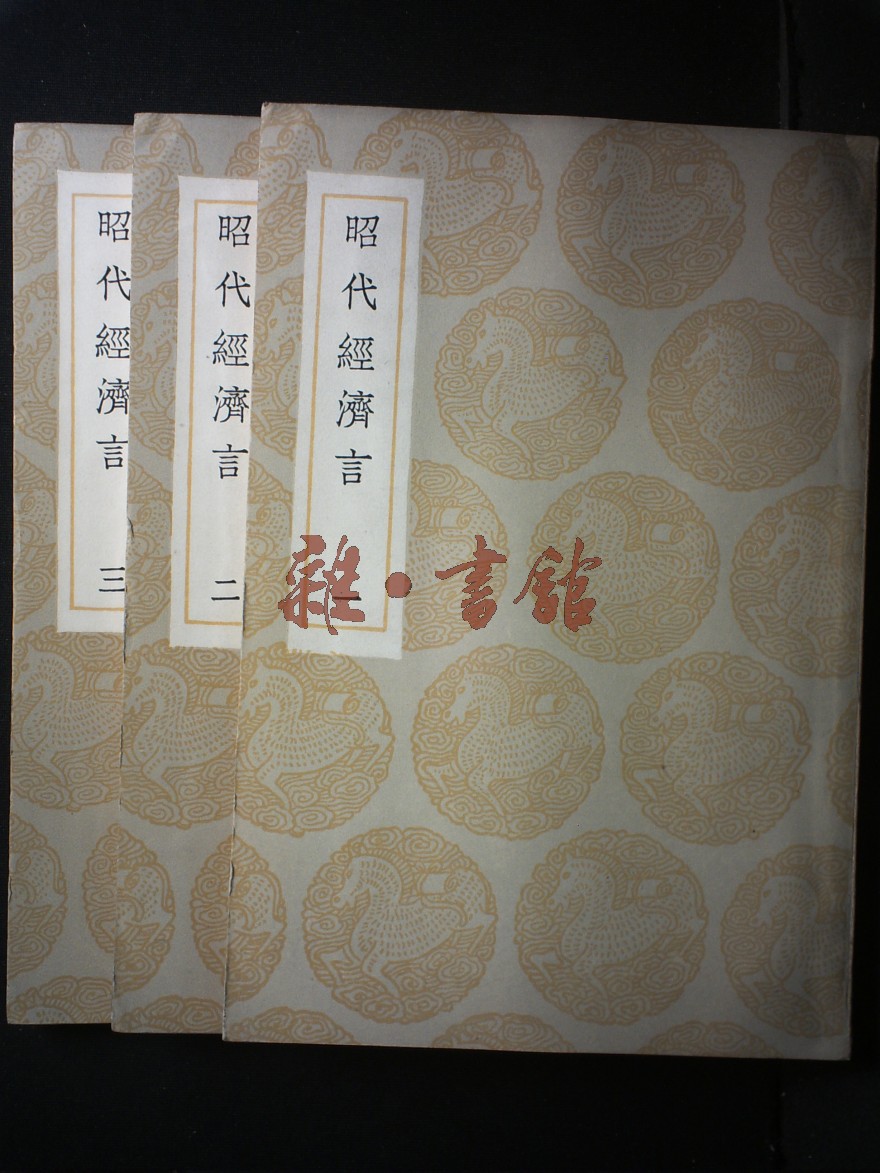 昭代經濟言 一
昭代經濟言 二
昭代經濟言 三
雜·書館